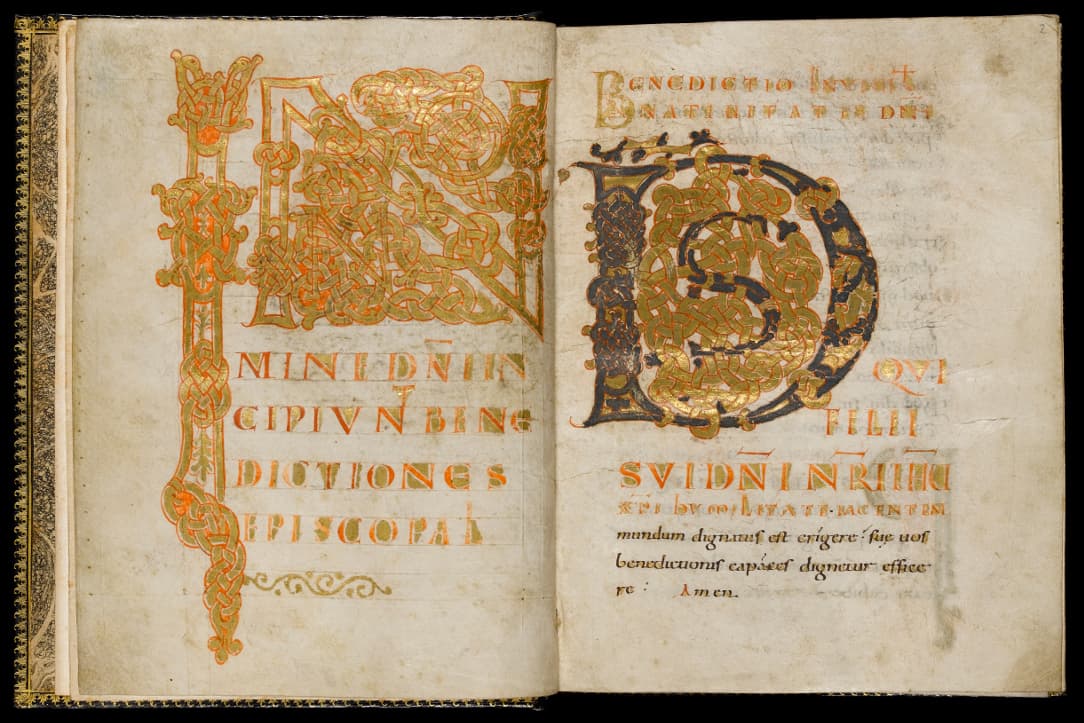 IN NO
MINE DÑI IN
CIPIVNT BENE
DICTIONES
EPISCOPAL
2
BENEDICTIO IN
NATIVITATIS DNI
DS
QVI
FILII
SVI DÑI NR̄I IHU
XP̄I hVmiLITATE IACENTEM
mundum dignatus est erigere suę uos
benedictionis capaces dignetur effice
re · Amen.